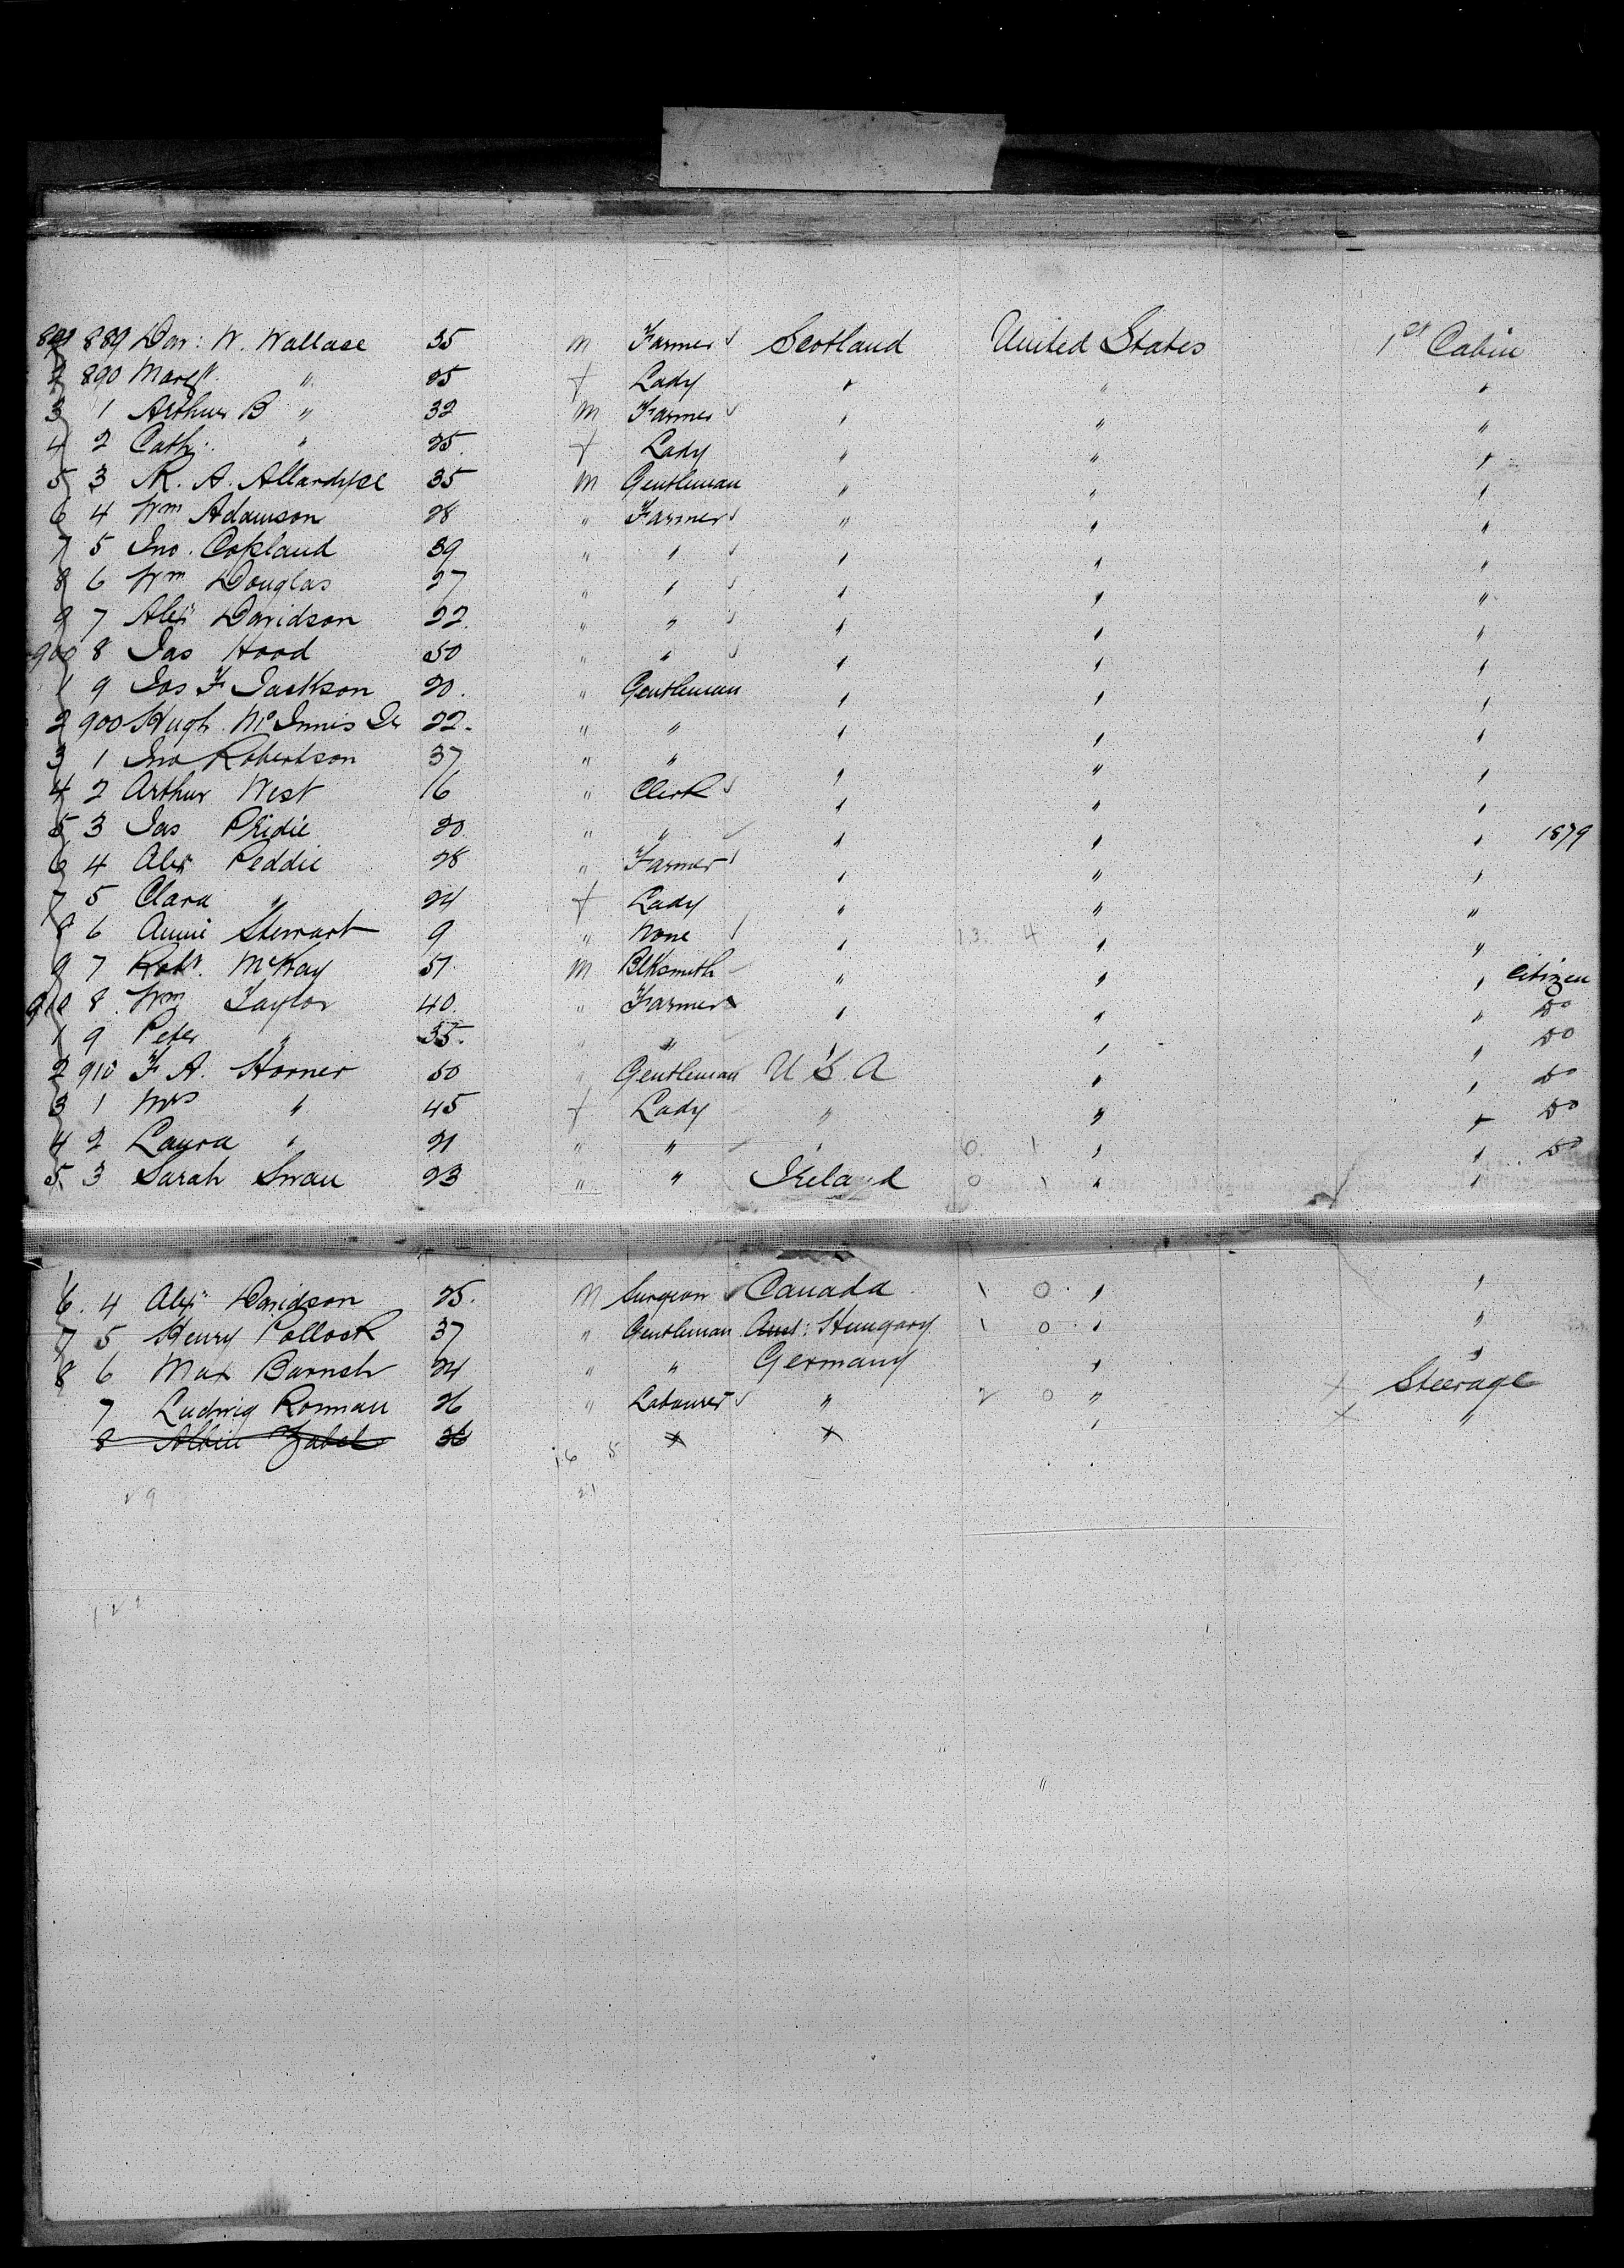 889 Dav: W. Wallace 35 m Farmer Scotland United States 1st Cabin
2 890 Margt " 25 f Lady " " "
3 1 Arthur B " 32 m Farmer " " "
4 2 Cath: " 25. f Lady " " "
5 3 R. A. Allardyce 35 m Gentleman " " "
6 4 Wm Adamson 28 " Farmer " " "
7 5 Jno. Copland 39 " " " " "
8 6 Wm Douglas 27 " " " " "
9 7 Alexr Davidson 22. " " " " "
900 8 Jas Hood 50 " " " " "
1 9 Jos F Jackson 20. " Gentleman " " "
2 900 Hugh McInnis Jr 22. " " " " "
3 1 Jno Robertson 37 " " " " "
4 2 Arthur West 16 " Clerk " " "
5 3 Jas 20. " " " " " 1879
6 4 Alexr Peddie 28 " Farmer " " "
7 5 Clara " 24 f Lady " " "
8 6 Annie Stewart 9 " None " 13. 4 " "
9 7 Robt. McKay 51. m Blksmith " " " Citizen
910 8 Wm Taylor 40. " Farmer " " " Do
1 9 Peter " 35. " " " " " Do
2 910 F A. Horner 50 " Gentleman U S. A " " Do
3 1 Mrs " 45 f Lady " " " Do
4 2 Laura " 21 " " " 6. 1 " " Do
5. 3 Sarah Swan 23 " " Ireland 0 1 " "
6. 4 Alexr Davidson 25. m Surgeon Canada 1 0 " "
7 5 Henry Pollock 37 " Gentleman Aust: Hungary 1 0 " "
8 6 Max Barnch 24 " " Germany " "
7 Ludwig Romnau 26 " Labourer " 2 0 " x Steerage
8 Albin Zabel 36 x x " x "
16 5
29 21